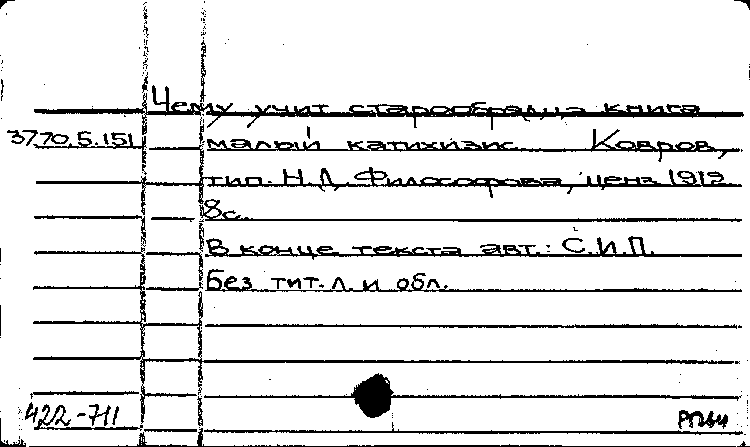 Чему учит старообрядца книга
3770.5.151 малый катихизис. Ковров,
тип. Н.Л. Философова, ценз. 1912
8с.
В конце текста авт.: С.И.П.
Без тит. л. и обл.
422-711